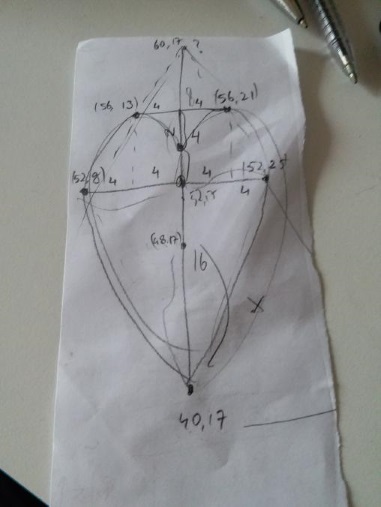 60,17 ?
(56,13) 4 4 (56,21)
4
(52,8) 4 4 4 (52,25)
4
(48,17)
16
X
40,17